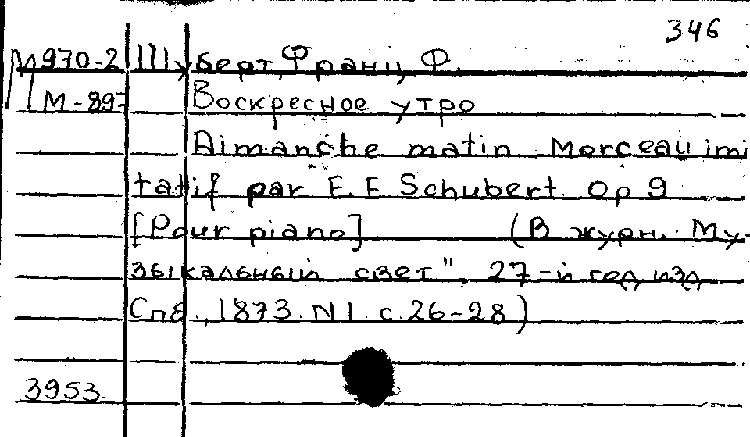 346
М970-2 Шуберт, Франц, Ф.
М-897 Воскресное утро
Dimanche matin. Morceau imi
tatif par E. E Schubert. Op 9
[Pour piano] (В журн. Му-
зыкальный свет", 27-й год изд
Спб., 1873. N1. с.26-28)
3953